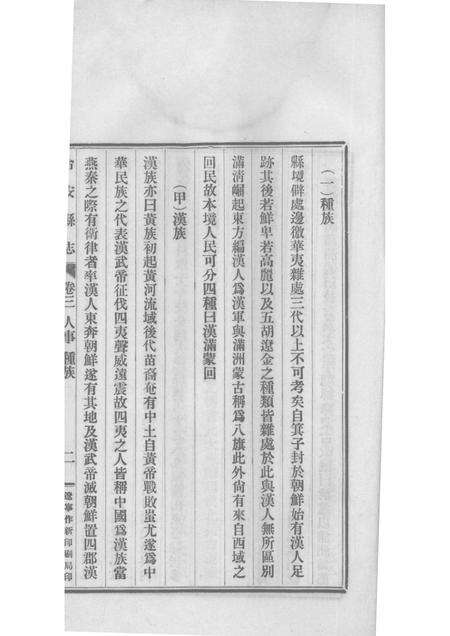 （一）種族
縣境僻處邊徼華夷雜處三代以上不可考矣自箕子封於朝鮮始有漢人足
跡其後若鮮卑若高麗以及五胡遼金之種類皆雜處於此與漢人無所區別
滿清崛起東方編漢人爲漢軍與滿洲蒙古稱爲八旗此外尚有來自西域之
回民故本境人民可分四種曰漢滿蒙回
（甲）漢族
漢族亦曰黃族初起黃河流域後代苗裔奄有中土自黃帝戰敗蚩尤遂爲中
華民族之代表漢武帝征伐四夷聲威遠震故四夷之人皆稱中國爲漢族當
燕秦之際有衛律者率漢人東奔朝鮮遂有其地及漢武帝滅朝鮮置四郡漢
安縣志 卷三 人事 種族 二 遼寧作新印刷局印